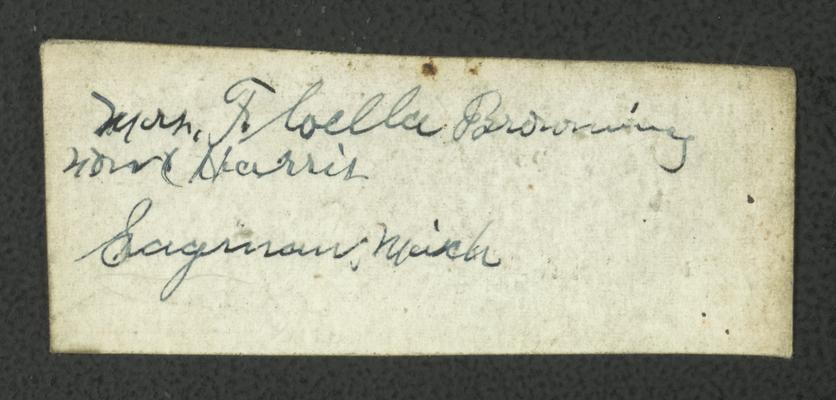 Mrs. Floella Browning
now Harris
Saginaw, Mich